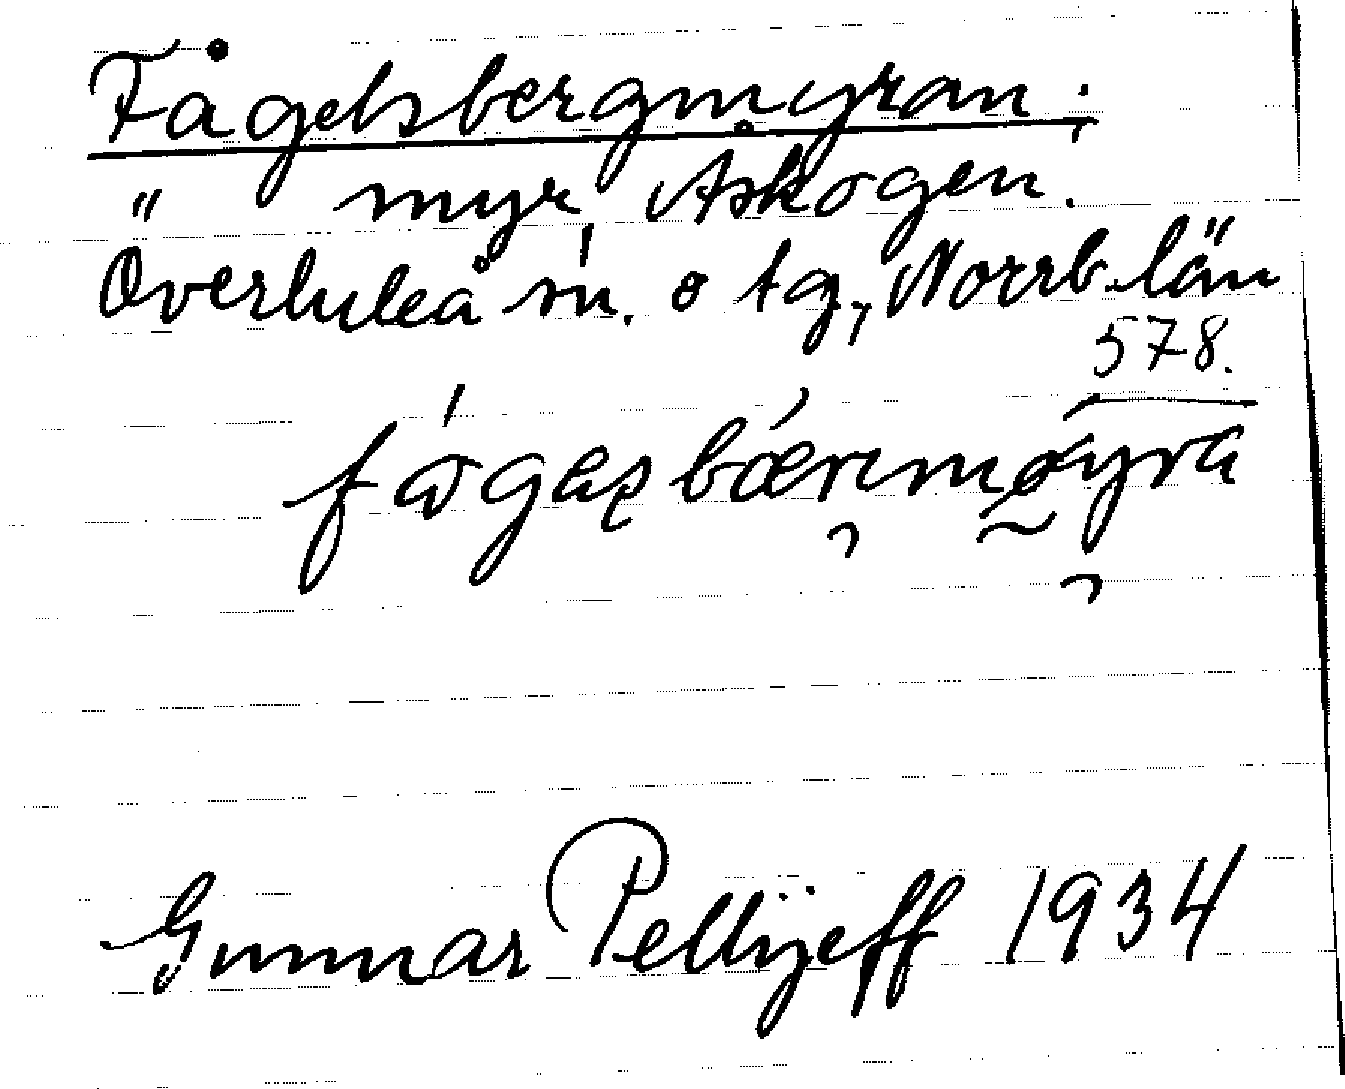 Fågelsbergmyran.;
" myr, Åskogen.
Överluleå sn. o tg, Norrb. län
578.
Gunnar Pellijeff 1934